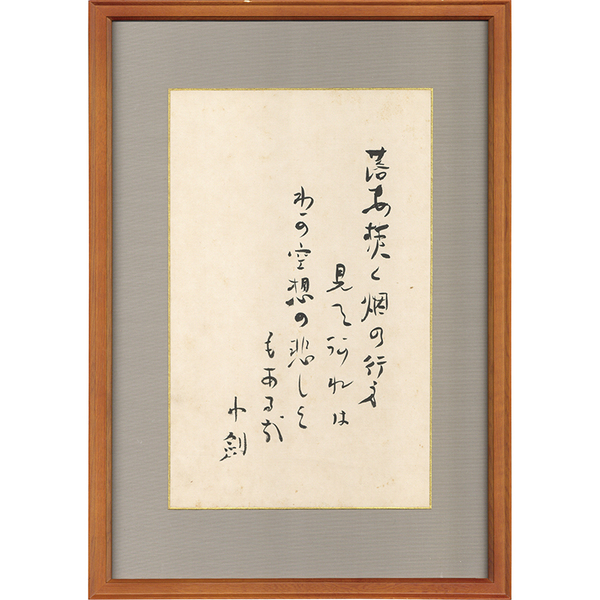 落葉焚く烟の行方
見て れは
わか空想の悲しく
もあるか
小劔